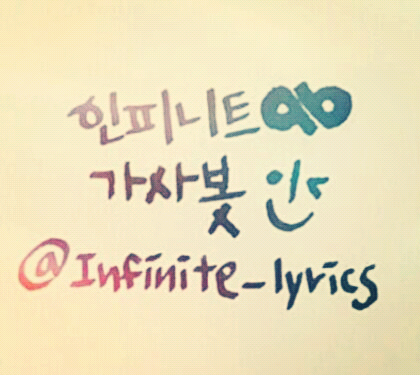 인피니트
가사봇
@Infinite_lyrics